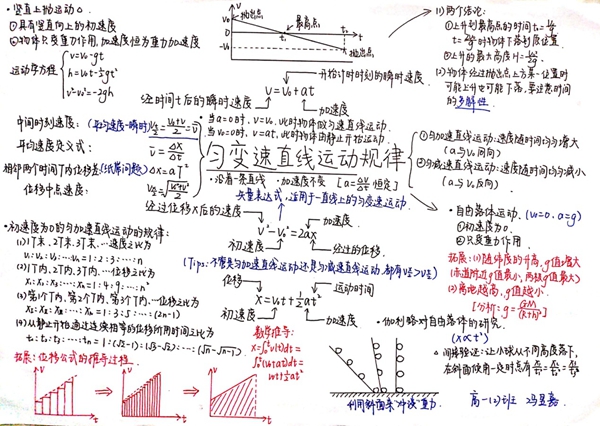 ·竖直上抛运动
①具有竖直向上的初速度
②物体只受重力作用,加速度恒为重力加速度
运动学方程
v=v₀-gt
h=v₀t-½gt²
v²-v₀²=-2gh
v
v₀
0
-v₀
抛出点
最高点
t₁
t₂
t
抛出点
(1)两个结论:
①上升到最高点的时间t₁=v₀/g
②上升的最大高度H=v₀²/2g
(2)物体经过抛出点上方某一位置时
可能上升也可能下落,要注意时间
的多解性.
开始计时时刻的瞬时速度
v=v₀+at
经时间t后的瞬时速度
加速度
·当a=0时,v=v₀,此时物体做匀速直线运动.
当v₀=0时,v=at,此时物体由静止开始运动
中间时刻速度:
(平均速度=瞬时)
v_{t/2}=(v₀+v)/2=v̄
平均速度定义式:
v̄=Δx/Δt
相邻两个时间T内位移差:(纸带问题)Δx=aT²
位移中点速度:
v_{x/2}=√((v₀²+v²)/2)
匀变速直线运动规律
·沿着一条直线 ·加速度不变 [a=Δv/Δt 恒定]
①匀加速直线运动:速度随时间均匀增大
(a与v₀同向)
②匀减速直线运动:速度随时间均匀减小
(a与v₀反向)
矢量表达式,适用于一直线上的匀变速运动
经过位移x后的速度
加速度
v²-v₀²=2ax
初速度
经过的位移
(Tips:不管是匀加速直线运动还是匀减速直线运动都有v_{x/2}>v_{t/2})
位移
运动时间
x=v₀t+½at²
初速度
加速度
·初速度为0的匀加速直线运动的规律:
(1)1T末,2T末,3T末…速度之比为
v₁:v₂:v₃:…:vₙ=1:2:3:…:n
(2)1T内,2T内,3T内…位移之比为
x₁:x₂:x₃:…:xₙ=1:4:9:…:n²
(3)第1个T内,第2个T内,第3个T内…位移之比为
xⅠ:xⅡ:xⅢ:…:xₙ=1:3:5:…:(2n-1)
(4)从静止开始通过连续相等的位移所用时间之比为
t₁:t₂:t₃:…:tₙ=1:(√2-1):(√3-√2):…:(√n-√(n-1))
拓展:位移公式的推导过程.
v
t
v
t
v
t
数学推导:
x=∫₀ᵗv(t)dt=
∫₀ᵗ(v₀+at)dt=
v₀t+½at²
·自由落体运动.(v₀=0.a=g)
①初速度为0.
②只受重力作用
拓展:(1)随纬度的升高,g值增大
(赤道附近g值最小,两极g值最大)
(2)离地越高,g值越小.
[分析:g=GM/(R+h)²]
·伽利略对自由落体的研究.
(x∝t²)
间接验证:让小球从不同高度落下,
利用斜面来"冲淡"重力.
高一(2)班